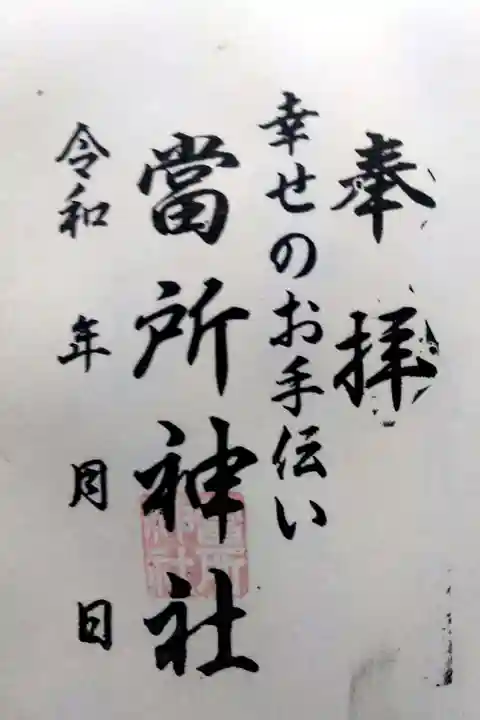 奉拝
幸せのお手伝い
當所神社
令和　年　月　日
當所神社